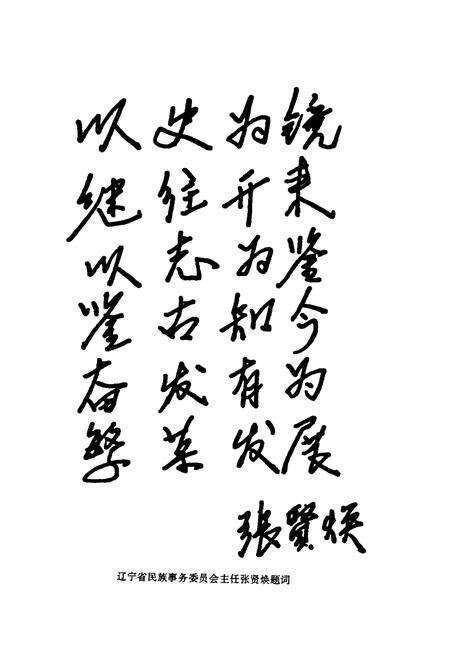 以史为镜
继往开来
以志为鉴
鉴古知今
奋发有为
繁荣发展
张贤焕
辽宁省民族事务委员会主任张贤焕题词